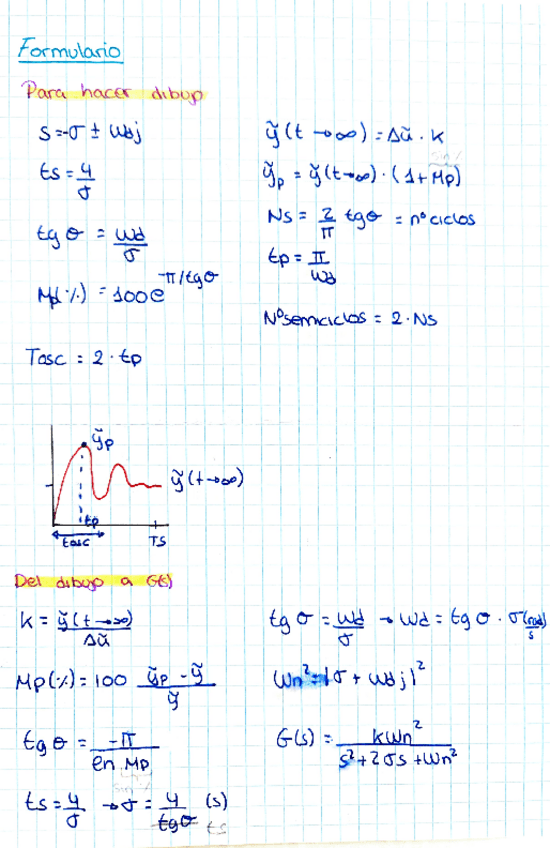 Formulario
Para hacer dibujo
s = -σ ± ωdj
ts = 4/σ
tg θ = ωd/σ
Mp(%) = 100e^(-π/tgθ)
Tasc = 2 · tp
ỹ(t→∞) = Δũ · k
ỹp = ỹ(t→∞) · (1+Mp)
Ns = 2/π tgθ = nº ciclos
tp = π/ωd
Nº semiciclos = 2 · Ns
ỹp
ỹ(t→∞)
tp
tasc
TS
Del dibujo a G(s)
k = ỹ(t→∞)/Δũ
Mp(%) = 100 (ỹp - ỹ)/ỹ
tg θ = -π/ln Mp
ts = 4/σ → σ = 4/ts (s)
tg σ = ωd/σ → ωd = tg θ · σ (rad/s)
ωn² = |σ + ωdj|²
G(s) = kωn²/(s² + 2σs + ωn²)